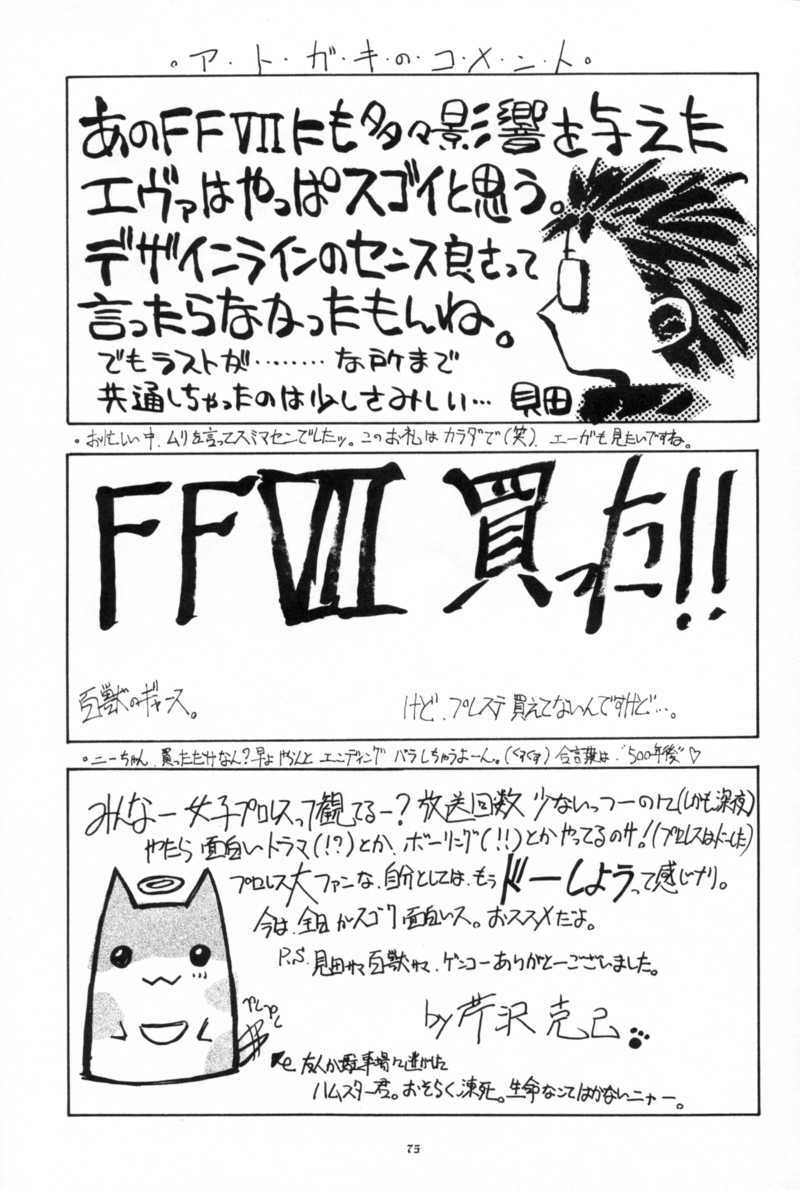 。ア・ト・ガ・キ・の・コ・メ・ン・ト。
あのFFⅦにも多々影響を与えた
エヴァはやっぱスゴイと思う。
デザインラインのセンス良さって
言ったらなかったもんね。
でもラストが………な所まで
共通しちゃったのは少しさみしい… 見田
。お忙しい中、ムリを言ってスミマセンでしたッ。このお礼はカラダで(笑)、エーがも見たいですね。
FFⅦ 買った!!
百獣のギャース。
けど、プレステ買えてないんですけど…。
。ニーちゃん、買っただけなん?早よやらんと エンディング バラしちゃうよーん。(くすくす) 合言葉は“500年後”♡
みんなー 女子プロレスって観てるー? 放送回数 少ないっつーのに(しかも深夜)
やたら 面白いドラマ(!?)とか、ボーリング(!!)とかやってるのサ!(プロレスはどーした)
プロレス大ファンな、自分としては、もう ドーしようって感じナリ。
今は、全日がスゴク面白いス。おススメだよ。
P.S. 見田サマ 百獣サマ、ゲンコーありがとーございました。
by 芹沢 克己
友人が駐車場に逃がした
ハムスター君。おそらく凍死。生命なんてはかないニャー。
75